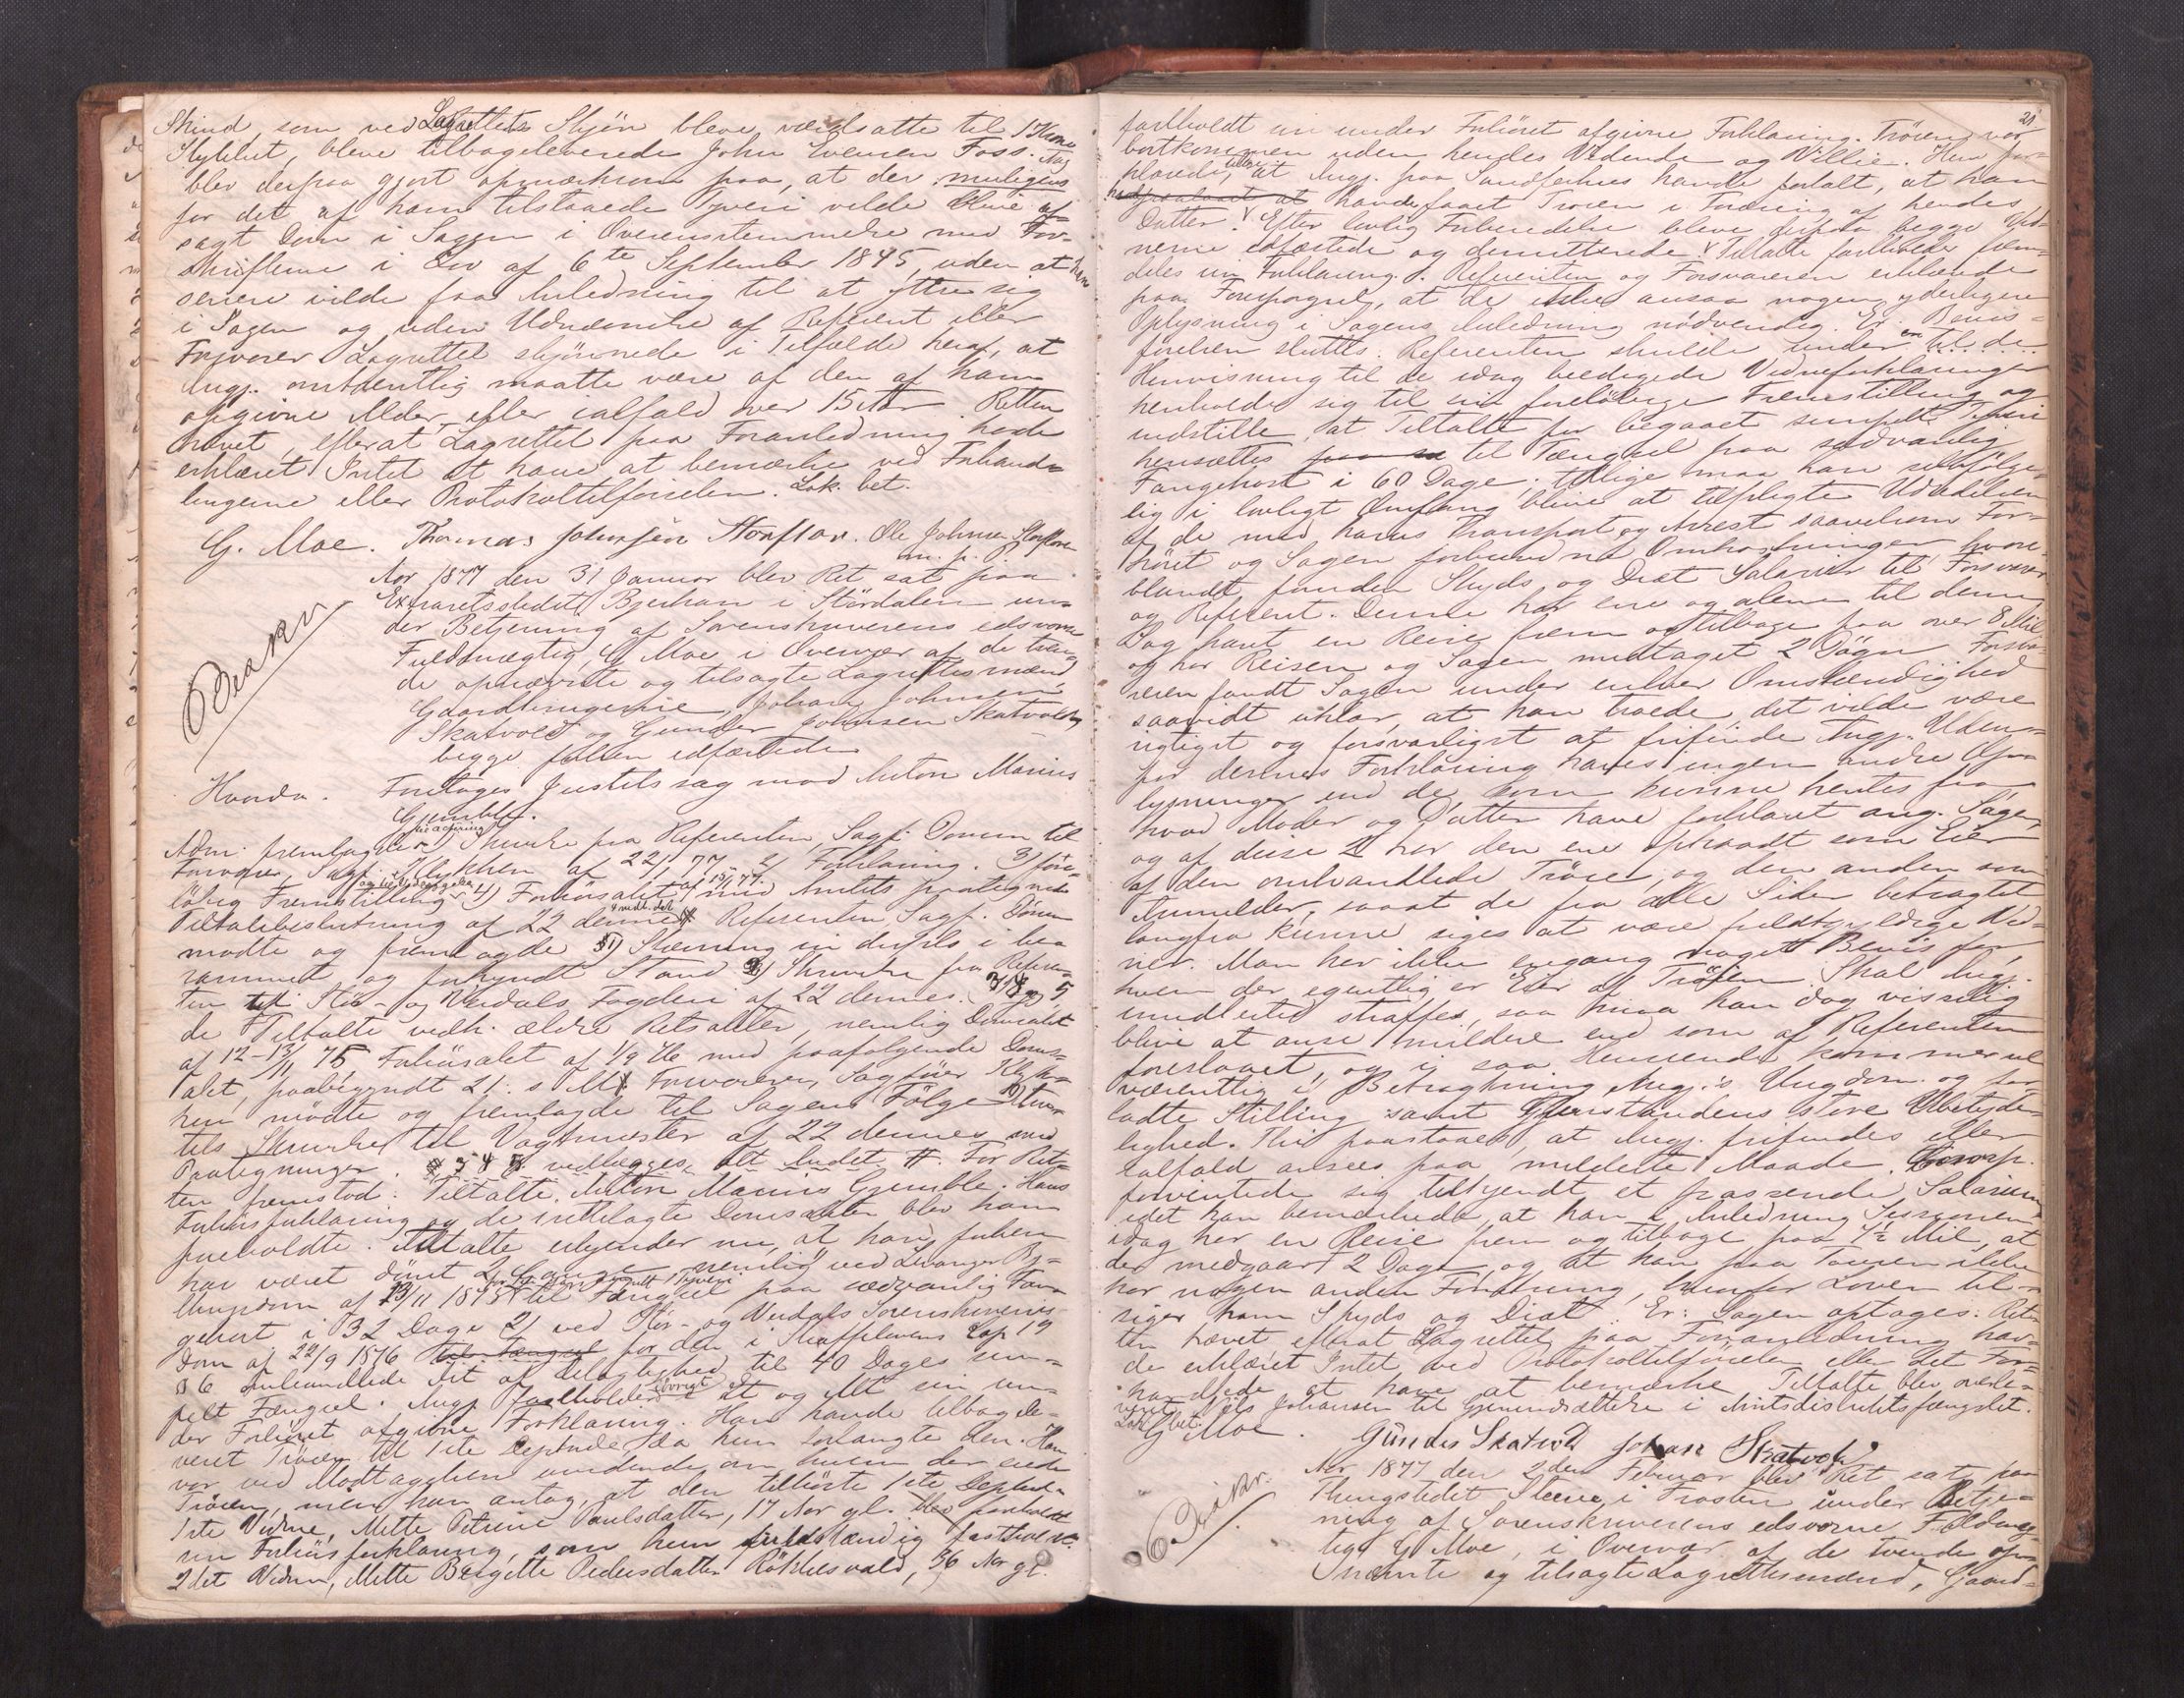 Skind, som ved Lagrettets Skjøn bleve værdsatte til 1 Krone
Stykket, bleve tilbageleverede John Evensen Foss. Ang
blev derpaa gjort opmærksom paa, at der muligens
for det af ham tilstaaede Tyveri vilde blive af-
sagt Dom i Sagen i Overensstemmelse med For-
skrifterne i Lov af 6te September 1845, uden at han
senere vilde faa Anledning til at yttre sig
i Sagen og uden Udnævnelse af Referent eller
Forsvarer. Lagrettet skjønnede i Tilfælde heraf, at
Angj. omtrentlig maatte være af den af ham
opgivne Alder, eller ialfald over 15 Aar. Retten
hævet, efterat Lagrettet paa Foranledning havde
erklæret Intet at have at bemærke ved Forhand-
lingerne eller Protokoltilførselen. Lok. bet.
G. Moe. Thomas Johnsen Storflor. Ole Johnsen Storflor
m. p. p.
Aar 1877 den 31 Januar blev Ret sat paa
Extraretsstedet Bjerkan i Stördalen un-
der Betjening af Sorenskriverens edsvorne
Fuldmægtig G Moe i Overvær af de tven-
de opnævnte og tilsagte Lagrettesmænd
Gaardbrugerne Johan Johnsen
Skatvold og Gunder Johnsen Skatvold,
begge forhen edfæstede
Hvorda. Foretoges Justitssag mod Anton Marius
Gjemble.
Adm. fremlagde 1) Skrivelse fra Referenten, Sagf. Dorum til
Forsvarer, Sagf. Klykken af 22/1 77. 2) Forklaring. 3) fore-
løbig Fremstilling 4) Forhørsakt af 15/1 77. med Amtets paategnede
Tiltalebeslutning af 22 dennes. Referenten Sagf. Dorum
mødte og fremlagde 5) Stævning in duplo i bea
rammet og forkyndt Stand 6) Skrivelse fra Referen-
ten til Stör- og Værdals Fogderi af 22 dennes.
de Tiltalte vedk. ældre Retsakter, nemlig Domsakt
af 12-13/11 75 Forhørsakt af 1/9 76 med paafølgende Doms-
akt, paabegyndt 21. s. M. Forsvareren, Sagfører Klyk-
ken mødte og fremlagde til Sagens Følge
tels Skrivelse til Vagtmester af 22 dennes med
Paategninger. vedlægges, Alt Ludet. For Ret-
ten fremstod: Tiltalte, Anton Marius Gjemble. Hans
Forhørsforklaring og de irettelagte Domsakter blev ham
foreholdte. Tiltalte erkjender nu, at han forhen
har været dömt 2 Gange nemlig ved Levanger By-
thingsdom af 13/11 1875 til Fængsel paa sædvanlig Fan-
gekost i 32 Dage 2) ved Stör- og Værdals Sorenskriveries
Dom af 22/9 1876 for den i Straffelovens Cap 19
§ 6 omhandlede Art af Delagtighed til 40 Dages sim-
pelt Fængsel. Angj. fastholder iövrigt Alt og Alt sin un-
der Forhöret afgivne Forklaring. Han havde tilbagele-
veret Tröien til 1ste Deponde da hun forlangte den. Han
var ved Modtagelsen uvidende om hvem der eiede
Tröien, men han antog, at den tilhörte 1ste Deponde-
1ste Vidne, Mette Petrine Paulsdatter, 17 Aar gl. blev foreholdt
sin Forhörsforklaring, som hun fuldstændig fastholdt.
2det Vidne, Mette Bergitte Pedersdatter Röthlesvald, 56 Aar gl.
21
fastholdt sin under Forhöret afgivne Forklaring. Tröien var
bortkommen uden hendes Vidende og Villie. Hun for-
klarede, at Angj. paa Sandferhus havde fortalt, at han
havde faaet Tröien i Foræring af hendes
Datter. Efter lovlig Forberedelse bleve derpaa begge Vid-
nerne edfæstede og demitterede. Tiltalte fastholder frem-
deles sin Forklaring. Referenten og Forsvareren erklærede
paa Forespørgsel, at de ikke ansaa nogen yderligere
Oplysning i Sagens Anledning nödvendig. Er. Bevis-
förelsen sluttes. Referenten skulde under en til de
Henvisning til de idag beedigede Vidneforklaringer
henholde sig til sin foreløbige Fremstilling og
indstille, at Tiltalte for begaaet simpelt Tyveri
hensættes til Fængsel paa sædvanlig
Fangekost i 60 Dage, tillige maa han selvfölge-
lig i lovligt Omfang blive at tilpligte Udredelsen
af de med hans Transport og Arrest saavelsom For-
höret og Sagen forbundne Omkostninger hvori-
blandt, foruden Skyds og Diæt Salærer til Forsvarer
og Referent. Denne har ene og alene til denne
Sag havt en Reise frem og tilbage paa over 8 Mil
og har Reisen og Sagen medtaget 2 Dögn. Forsva-
reren fandt Sagen under enhver Omstændighed
saavidt uklar, at han troede, det vilde være
rigtigst og forsvarligst at frifinde Angj. Uden-
for dennes Forklaring haves ingen andre Op-
lysninger end de som kunne hentes fra
hvad Moder og Datter have forklaret ang. Sagen,
og af disse 2 har den ene optraadt som Eier
af den omhandlede Tröie, og den anden som
Anmelder, saaat de fra alle Sider betragtet
langtfra kunne siges at være fuldtgyldige Vid-
ner. Man har ikke engang noget Bevis for,
hvem der egentlig er Eier af Tröien. Skal Angj.
imidlertid straffes, saa maa han dog visselig
blive at anse mildere end som af Referenten
foreslaaet, og i saa Henseende kommer vel
væsentlig i Betragtning Angj.'s Ungdom og for-
ladte Stilling samt Gjenstandens store Ubetyde-
lighed. Thi paastaaes, at Angj. frifindes eller
ialfald ansees paa mildeste Maade.
forventede sig tilkjendt et passende Salarium
idet han bemærkede, at han i Anledning Sessionen
idag har en Reise frem og tilbage paa 4½ Mil, at
der medgaar 2 Dage og at han paa Touren ikke
har nogen anden Forretning, hvorfor Loven til-
siger ham Skyds og Diæt. Er: Sagen optages. Ret-
ten hævet, efterat Lagrettet paa Foranledning hav-
de erklæret Intet ved Protokoltilförselen eller det For-
handlede at have at bemærke. Tiltalte blev overle-
veret Nils Johansen til Gjenindsættelse i Amtsdistriktsfængslet.
Lok. bet.
G Moe. Gunder Skatvold Johan Skatvold
Aar 1877 den 2den Februar blev Ret sat paa
Thingstedet Steene, i Frosten under Betje-
ning af Sorenskriverens edsvorne Fuldmæg-
tig G Moe, i Overvær af de tvende op-
nævnte og tilsagte Lagrettesmænd, Gaard-